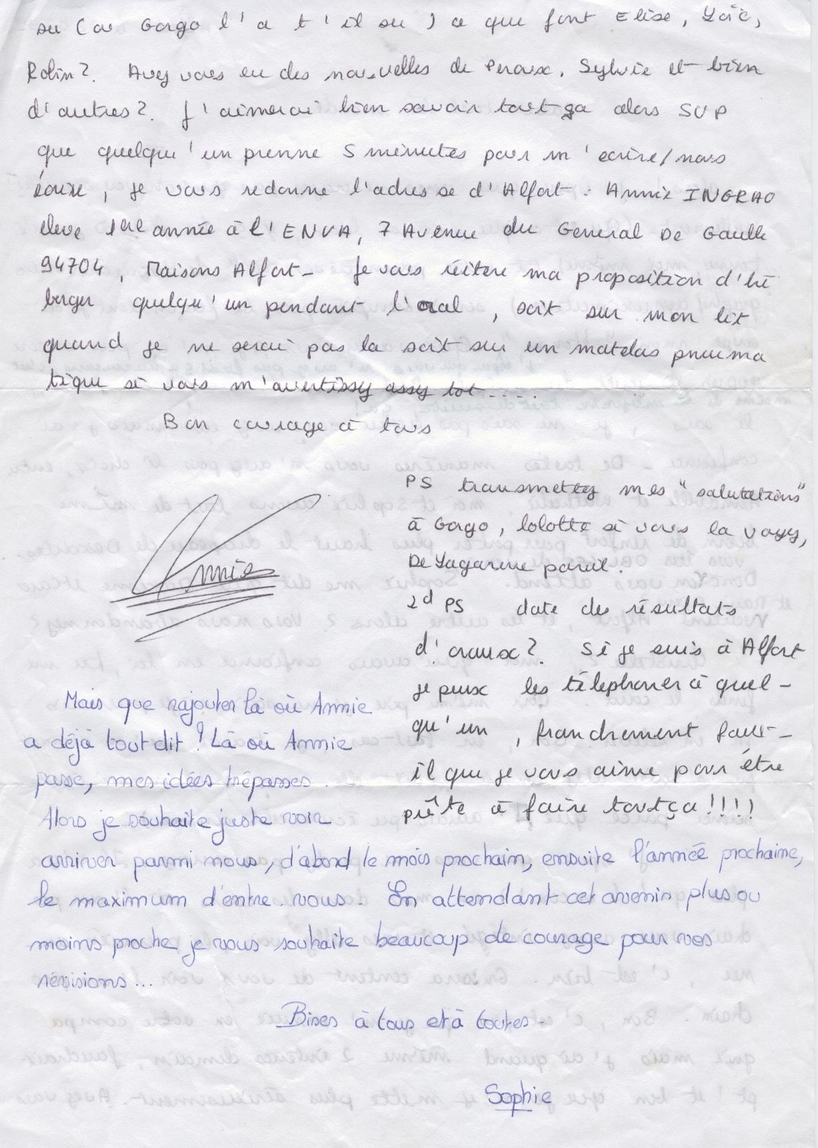 su (ou Gorgo l'a t'il su) ce que font Elise, Loïc,
Robin ?. Avez vous eu des nouvelles de Sylvie et bien
d'autres ?. J'aimerai bien savoir tout ça alors SVP
que quelqu'un prenne 5 minutes pour m'ecrire/nous
écrire, je vous redonne l'adresse d'Alfort : Annie INGRAO
eleve 1ere année à l'ENVA, 7 Avenue du General De Gaulle
94704, Maisons Alfort - Je vous réitère ma proposition d'hé
berger quelqu'un pendant l'oral, soit sur mon lit
quand je ne serai pas la soit sur un matelas pneuma
tique si vous m'avertissez assez tot....
Bon courage à tous
Annie
PS transmettez mes "salutations"
à Gorgo, lolotte si vous la voyez,
De Lagarine pareil.
2d PS date des résultats
d'oraux ?. Si je suis à Alfort
je peux les téléphoner à quel-
qu'un, franchement faut-
il que je vous aime pour être
prête à faire tout ça !!!!
Mais que rajouter là où Annie
a déjà tout dit ! Là où Annie
passe, mes idées trépasses.
Alors je souhaite juste voir
arriver parmi nous, d'abord le mois prochain, ensuite l'année prochaine,
le maximum d'entre vous. En attendant cet avenir plus ou
moins proche je vous souhaite beaucoup de courage pour vos
révisions...
Bises à tous et à toutes.
Sophie